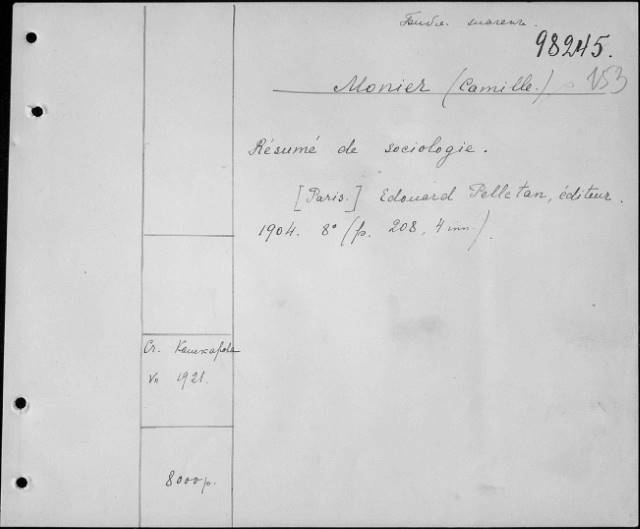 98245.
Monier (Camille.) 153
Résumé de sociologie.
[Paris.] Edouard Pelletan, éditeur.
1904. 8° (p. 208, 4 inn.).
Ст.
VII 1921.
8000 р.